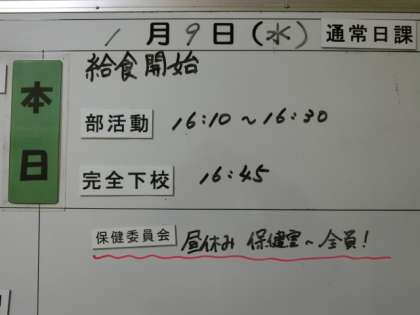 1月9日(水) 通常日課
本日
給食開始
部活動 16:10～16:30
完全下校 16:45
保健委員会 昼休み 保健室へ全員!